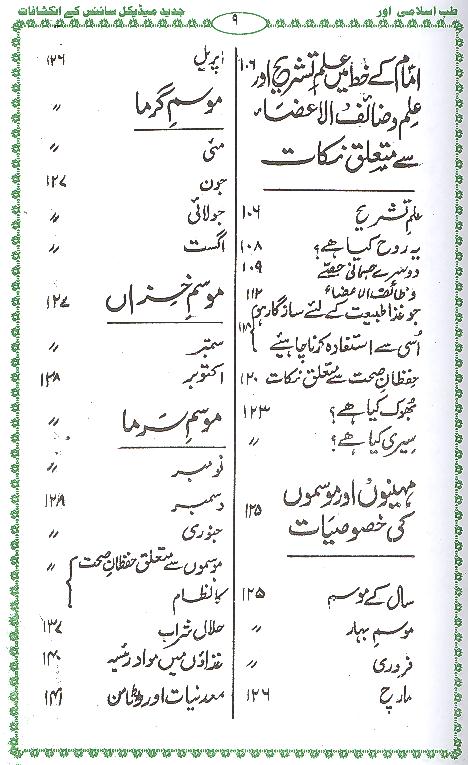 طب اسلامی اور
۹
جدید میڈیکل سائنس کے انکشافات
امام کے خط میں علم تشریح اور ۱۰۶
علم وظائف الاعضاء
سے متعلق نکات
علم تشریح ۱۰۶
یہ روح کیا ہے؟ ۱۰۸
دوسرے جسمانی حصے ۱۰۹
وظائف الاعضاء ۱۱۲
جو غذا طبیعت کے لئے سازگار ہو
اُسی سے استفادہ کرنا چاہیئے ۱۱۸
حفظانِ صحت سے متعلق نکات ۱۲۰
بھوک کیا ہے؟ ۱۲۳
سیری کیا ہے؟ 〃
مہینوں اور موسموں
کی خصوصیات ۱۲۵
سال کے موسم ۱۲۵
موسم بہار 〃
فروری 〃
مارچ ۱۲۶
اپریل ۱۲۶
موسم گرما 〃
مئی 〃
جون ۱۲۷
جولائی 〃
اگست 〃
موسم خزاں ۱۲۷
ستمبر 〃
اکتوبر ۱۲۸
موسم سرما 〃
نومبر 〃
دسمبر ۱۲۹
جنوری 〃
موسموں سے متعلق حفظانِ صحت 〃
کا نظام
حلال شراب ۱۳۷
غذاؤں میں مواد رئیسہ ۱۴۰
معدنیات اور وٹامن ۱۴۱